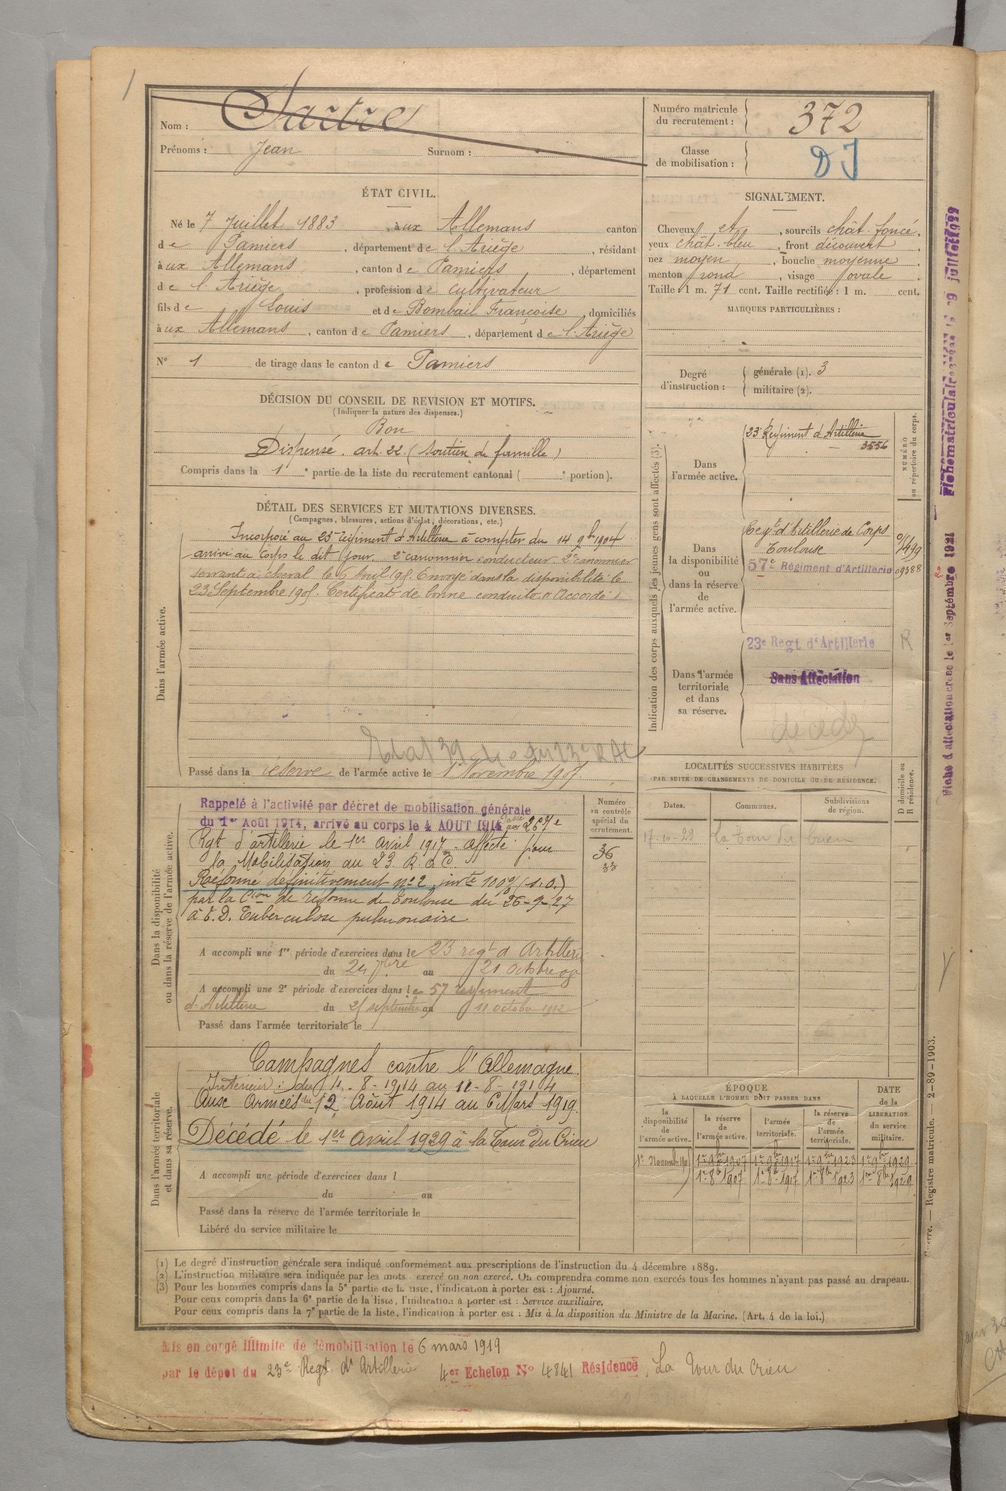 Nom : Sartre
Prénoms : Jean Surnom :
Numéro matricule du recrutement : 372
Classe de mobilisation : DJ
ÉTAT CIVIL.
Né le 7 Juillet 1883, à ux Allemans canton
de Pamiers, département de l'Ariège, résidant
à ux Allemans, canton de Pamiers, département
de l'Ariège, profession de cultivateur
fils de Louis et de Bombail Françoise, domiciliés
à ux Allemans, canton de Pamiers, département de l'Ariège
N° 1 de tirage dans le canton de Pamiers
SIGNALEMENT.
Cheveux et, sourcils chât. foncé.
yeux chât. bleu, front découvert
nez moyen, bouche moyenne
menton rond, visage ovale
Taille 1 m. 71 cent. Taille rectifiée : 1 m. cent.
MARQUES PARTICULIÈRES :
Degré d'instruction : générale (1). 3
militaire (2).
DÉCISION DU CONSEIL DE REVISION ET MOTIFS.
(Indiquer la nature des dispenses.)
Bon
Dispensé. art. 22 (soutien de famille)
Compris dans la 1e partie de la liste du recrutement cantonal ( e portion).
DÉTAIL DES SERVICES ET MUTATIONS DIVERSES.
(Campagnes, blessures, actions d'éclat, décorations, etc.)
Dans l'armée active.
Incorporé au 23e régiment d'Artillerie à compter du 14 9bre 1904
arrivé au Corps le dit jour. 2e canonnier conducteur. 2e canonnier
servant à cheval le Avril 190 Envoyé dans la disponibilité le
23 Septembre 190 Certificat de bonne conduite accordé
Passé dans la réserve de l'armée active le 1 Novembre 1907
Indication des corps auxquels les jeunes gens sont affectés (3).
NUMÉRO au répertoire du corps.
Dans l'armée active.
23e Régiment d'Artillerie
3556
Dans la disponibilité ou dans la réserve de l'armée active.
Regt d'Artillerie de Corps
Toulouse
57e Régiment d'Artillerie
Dans l'armée territoriale et dans sa réserve.
23e Regt d'Artillerie R
Sans Affectation
décédé
Dans la disponibilité ou dans la réserve de l'armée active.
Rappelé à l'activité par décret de mobilisation générale
du 1er Août 1914, arrivé au corps le 4 AOUT 1914 Passé au 257e
Rgt d'artillerie le 1er avril 1917. Affecté pour
la Mobilisation au 23 R.A.C.
Réformé définitivement n° 2 invté 100% (S.O.)
par la Con de réforme de Toulouse du 26-9-27
à E.D. Tuberculose pulmonaire
Numéro au contrôle spécial du recrutement.
36
33
A accompli une 1re période d'exercices dans le 23 regt d'Artillerie
du 24 7bre au 21 Octobre 09
A accompli une 2e période d'exercices dans le 57 régiment
d'Artillerie du 25 septembre au 11 octobre 1912
Passé dans l'armée territoriale le
LOCALITÉS SUCCESSIVES HABITÉES
PAR SUITE DE CHANGEMENTS DE DOMICILE OU DE RÉSIDENCE.
Dates. Communes. Subdivisions de région. D domicile ou R résidence.
17-10-22 La Tour du Crieu
Dans l'armée territoriale et dans sa réserve.
Campagnes contre l'Allemagne.
Intérieur : du 4-8-1914 au 11-8-1914
Aux Armées du 12 Août 1914 au 6 Mars 1919.
Décédé le 1er avril 1929 à la Tour du Crieu
A accompli une période d'exercices dans l
du au
Passé dans la réserve de l'armée territoriale le
Libéré du service militaire le
ÉPOQUE
À LAQUELLE L'HOMME DOIT PASSER DANS
DATE de la LIBÉRATION du service militaire.
la disponibilité de l'armée active. la réserve de l'armée active. l'armée territoriale. la réserve de l'armée territoriale.
1r 9bre 1907 1r 9bre 1917 1r 9bre 1923 1r 9bre 1929
1r 8bre 1907 1r 8bre 1917 1r 8bre 1923 1r 8bre 1929
(1) Le degré d'instruction générale sera indiqué conformément aux prescriptions de l'instruction du 4 décembre 1889.
(2) L'instruction militaire sera indiquée par les mots : exercé ou non exercé. On comprendra comme non exercés tous les hommes n'ayant pas passé au drapeau.
(3) Pour les hommes compris dans la 5e partie de la liste, l'indication à porter est : Ajourné.
Pour ceux compris dans la 6e partie de la liste, l'indication à porter est : Service auxiliaire.
Pour ceux compris dans la 7e partie de la liste, l'indication à porter est : Mis à la disposition du Ministre de la Marine. (Art. 4 de la loi.)
Mis en congé illimité de démobilisation le 6 mars 1919
par le dépôt du 23e Regt d'Artillerie 4er Echelon N° 4841 Résidence La Tour du Crieu
Registre matricule. — 2-89-1903.
Fiche d'affectation créée le 1er Septembre 1921